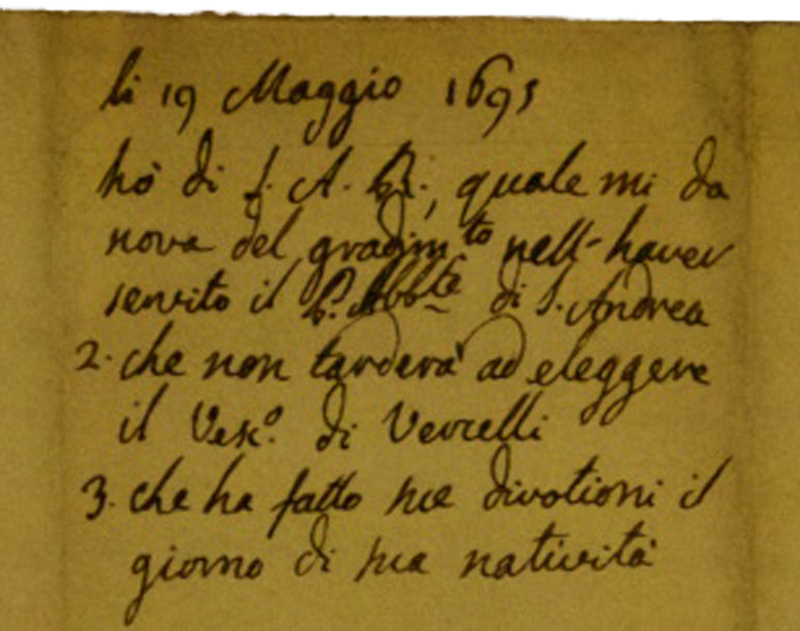 li 19 Maggio 1695
hò di S. A. R., quale mi da
nova del gradim.to nell-haver
servito il P. Abbte di S. Andrea
2. che non tarderà ad eleggere
il Vesc.o di Vercelli
3. che ha fatto sue divotioni il
giorno di sua natività